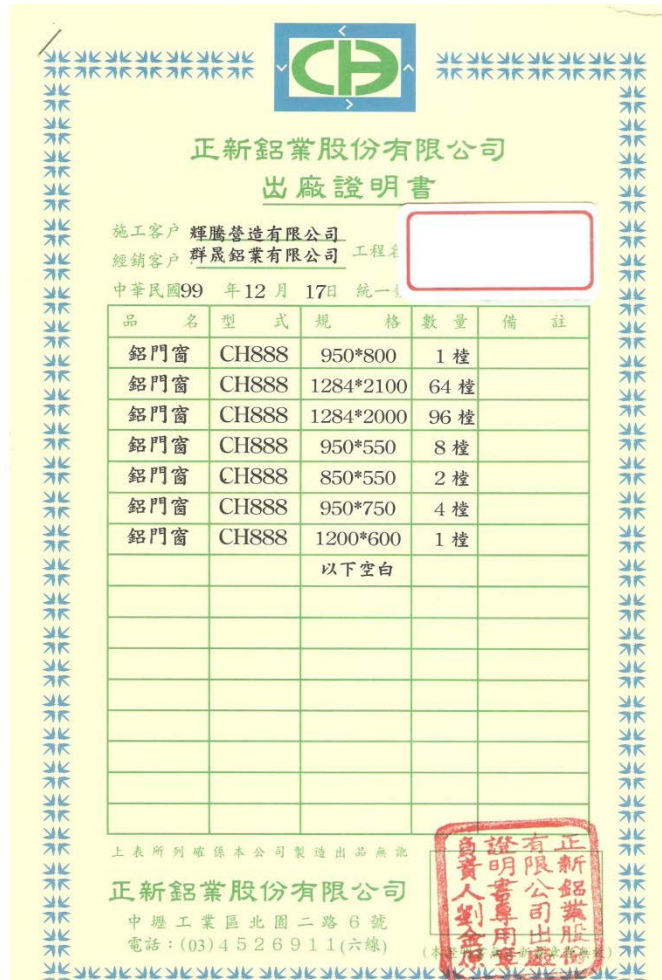 CH
正新鋁業股份有限公司
出廠證明書
施工客戶 輝騰營造有限公司
經銷客戶 群晟鋁業有限公司 工程名
中華民國99 年12月 17日 統一
品名 型式 規格 數量 備註
鋁門窗 CH888 950*800 1樘
鋁門窗 CH888 1284*2100 64樘
鋁門窗 CH888 1284*2000 96樘
鋁門窗 CH888 950*550 8樘
鋁門窗 CH888 850*550 2樘
鋁門窗 CH888 950*750 4樘
鋁門窗 CH888 1200*600 1樘
以下空白
上表所列確係本公司製造出品無訛
正新鋁業股份有限公司
中壢工業區北園二路6號
電話：(03)4526911(六線)
正新鋁業股份
有限公司出廠
證明書專用章
負責人劉